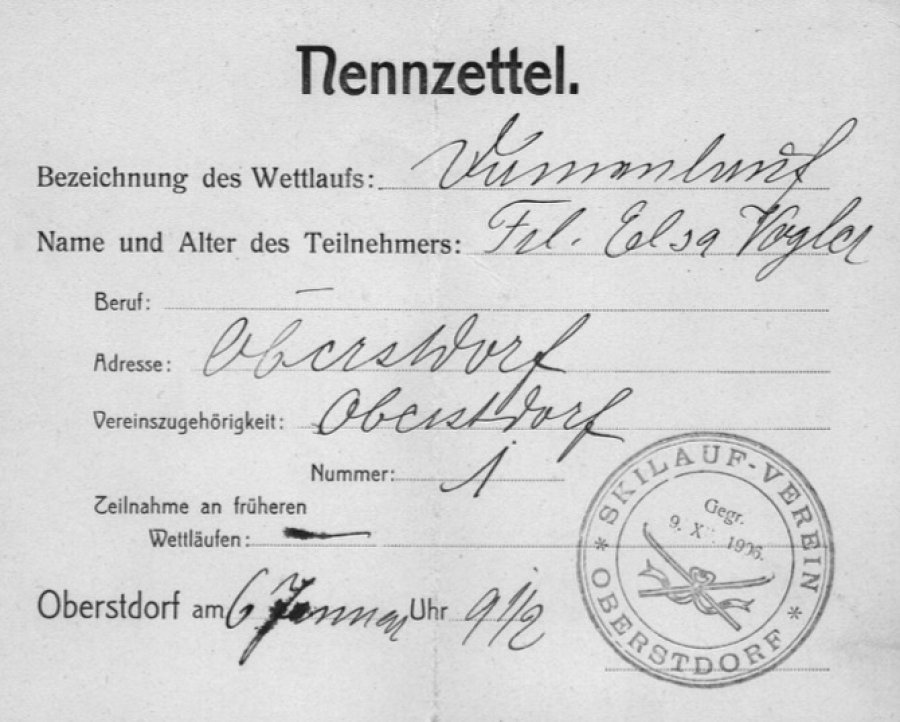 Nennzettel.
Bezeichnung des Wettlaufs: Damenlauf
Name und Alter des Teilnehmers: Frl. Elsa Vogler
Beruf: —
Adresse: Oberstdorf
Vereinszugehörigkeit: Oberstdorf
Nummer: 1
Teilnahme an früheren
Wettläufen: —
Oberstdorf am 6 Januar Uhr 9 1/2
* SKILAUF-VEREIN * OBERSTDORF
Gegr.
9. X . 1906.